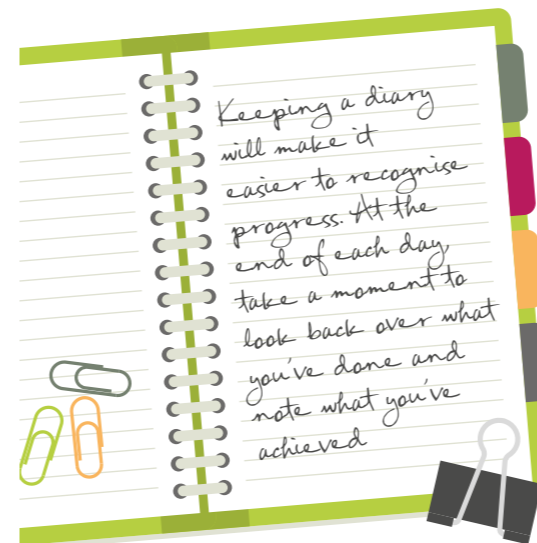 Keeping a diary
will make it
easier to recognise
progress. At the
end of each day,
take a moment to
look back over what
you've done and
note what you've
achieved